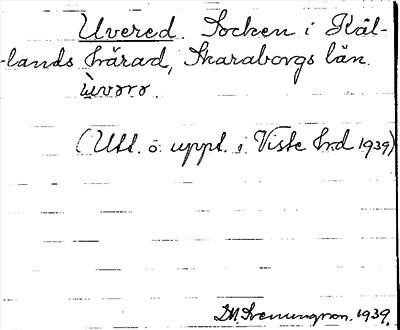 Uvered. Socken i Kål-
-lands härad, Skaraborgs län.
ùvərə.
(Utt. o. uppt. i Viste hrd 1939)
1939.